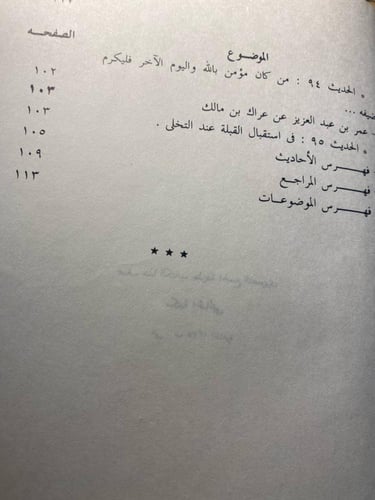 الموضوع الصفحـــه
* الحديث ٩٤ : من كان مؤمن بالله واليوم الآخر فليكرم
ضيفه ... ١٠٢
- عمر بن عبد العزيز عن عراك بن مالك ١٠٣
* الحديث ٩٥ : فى استقبال القبلة عند التخلى . ١٠٣
فهـــرس الأحاديث ١٠٥
فهـــرس المراجع ١٠٩
فهـــرس الموضوعات ١١٣
***